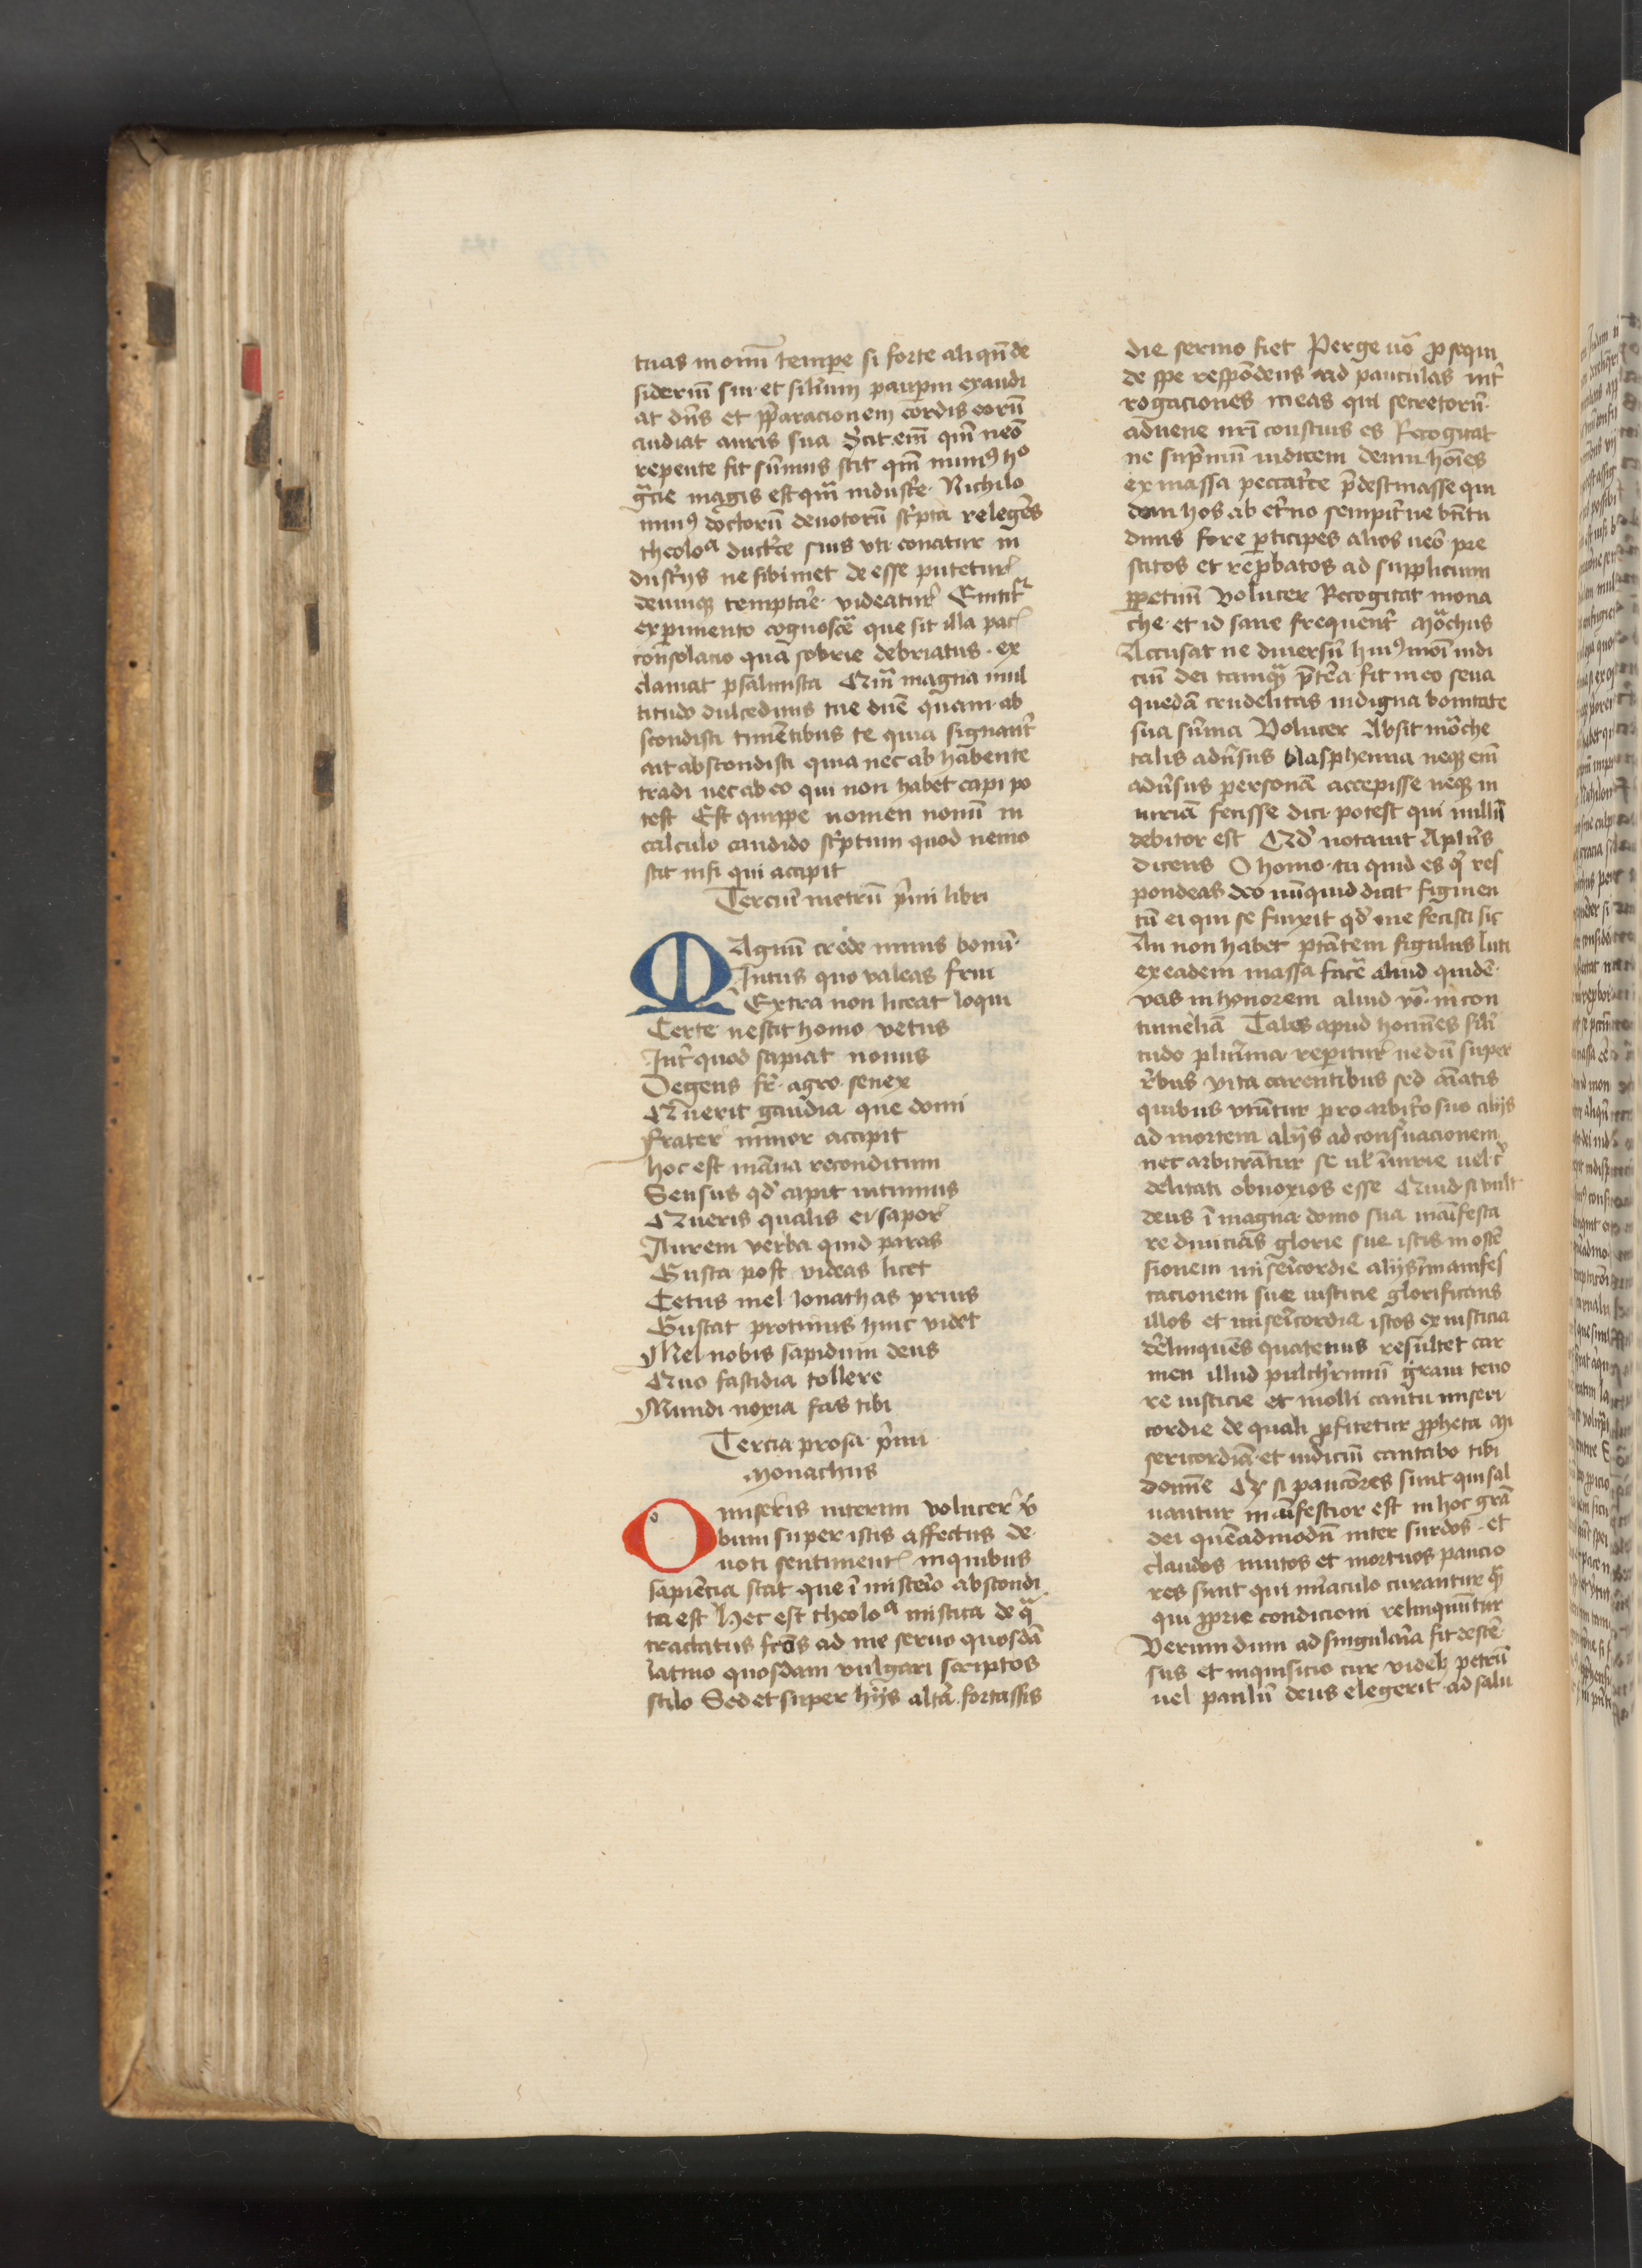 tuas in om̄i tempe si forte aliqn̄ de
sideriū suū et filium paup̄m exaudi
at dn̄s et p̄paracionem cordis eorū
audiat auris sua Scit em̄ qm̄ nēo
repente fit sūmus scit qm̄ munꝰ hᵒ
gr̄cie magis est qm̄ industⁱe Nichilo
minꝰ doctorū deuotorū scⁱpta relegēs
theoloᵃ ductⁱce suis vti conatur in
dustⁱjs ne sibimet de esse putetur
deumqꝫ temptār̄e videatur
exp̄imento cognoscē que sit illa pac̄
consolacio quā sobrie debriatus ex
clamat psalmista Qm̄ magna mul
titudo dulcedinis tue dn̄e quam ab
scondisti timētibus te quia signant̄
ait abscondisti quia nec ab habente
tradi nec ab eo qui non habet capi po
test Est quippe nomen nouū in
calculo candido scⁱptum quod nemo
scit nisi qui accipit
Terciū metrū pⁱmi libri
MAgnū crede minus bonū
Intus quo valeas frui
Extra non liceat loqui
Certe nescit homo vetus
Int̄ quod sapiat nouus
Degens fr̄ agro senex
Querit gaudia que domi
frater minor accipit
hoc est māna reconditum
Sensus qd̄ capit intimus
Queris qualis ei sapor
Aurem verba quid paras
Gusta post videas licet
Cetus mel ionathas prius
Gustat protinus hinc videt
Mel nobis sapidum deus
Quo fastidia tollere
Mundi noxia fas tibi
Tercia prosa pⁱmi
Monachus
Omiseris interim volucer v̄
bum super istis affectus de
uoti sentiment̄ in quibus
sapiēcia scat que ī misterio abscondi
ta est Hec est theoloᵃ mistica de qᵃ
tractatus frōs ad me seruo quosdā
latino quosdam vulgari scriptos
stilo Sed et super hijs altā fortassis
die sermo fiet Perge v̄o p̄sequi
de spe respōdens ad pauculas int̄
rogaciones meas qui secretorū
aduene nr̄i conscius es Recogitat
ne sup̄mū iudicem demū hoīes
ex massa peccatⁱce p̄destinasse qui
dam hos ab et̄no sempit̄ne bn̄tu
dinis fore p̄ticipes alios ueō pre
scitos et rep̄batos ad supplicium
p̄petuū Volucer Recogitat mona
che et id sane frequent̄ Mōchus
Accusat ne diuersū huiꝰmōi iudi
ciū dei tamqᵃ p̄terea fit in eo seua
quedā crudelitas indigna bonitate
sua sūma Volucer Absit mōche
talis adūsus blasphemia neqꝫ em̄
adūsus personā accepisse neqꝫ in
iuriā fecisse dici potest qui nulliꝰ
debitor est Qd̄ notauit Aplūs
dicens O homo tu quid es qⁱ res
pondeas deo nūquid dicit figmen
tū ei qui se finxit qd̄ me fecisti sic
An non habet ptātem figulus luti
ex eadem massa facē aliud quidē
vas in honorem aliud vō in con
tumeliā Tales apud homines sili
tudo plurima reperitur nedū super
rēbus vita carentibus sed aīatis
quibus vtūtur pro arbitⁱo suo alijs
ad mortem alijs ad conseruacionem
nec arbitrātur se ul̄ iniurie uel c
delitati obnoxios esse Quid si vult
deus ī magna domo sua māifesta
re diuicias glorie sue istis in ostē
sionem misericordie alijs in manifes
tacionem sue iusticie glorificans
illos ex misericordia istos ex iusticia
derelinquēs quatenus resultet car
men illud pulcherrimū graui teno
re iusticie et molli cantu miseri
cordie de quali p̄fitetur p̄pheta Mi
sericordiā et iudiciū cantabo tibi
domine Qꝫ si pauciores sunt qui sal
uantur manifestior est in hoc grā
dei quēadmodū inter surdos et
claudos mutos et mortuos paucio
res sunt qui miraculo curantur qᵃ
qui p̄prie condicioni relinquūtur
Verum dum ad singularia fit descē
sus et inquisicio cur videlꝫ petrū
uel paulū deus elegerit ad salu